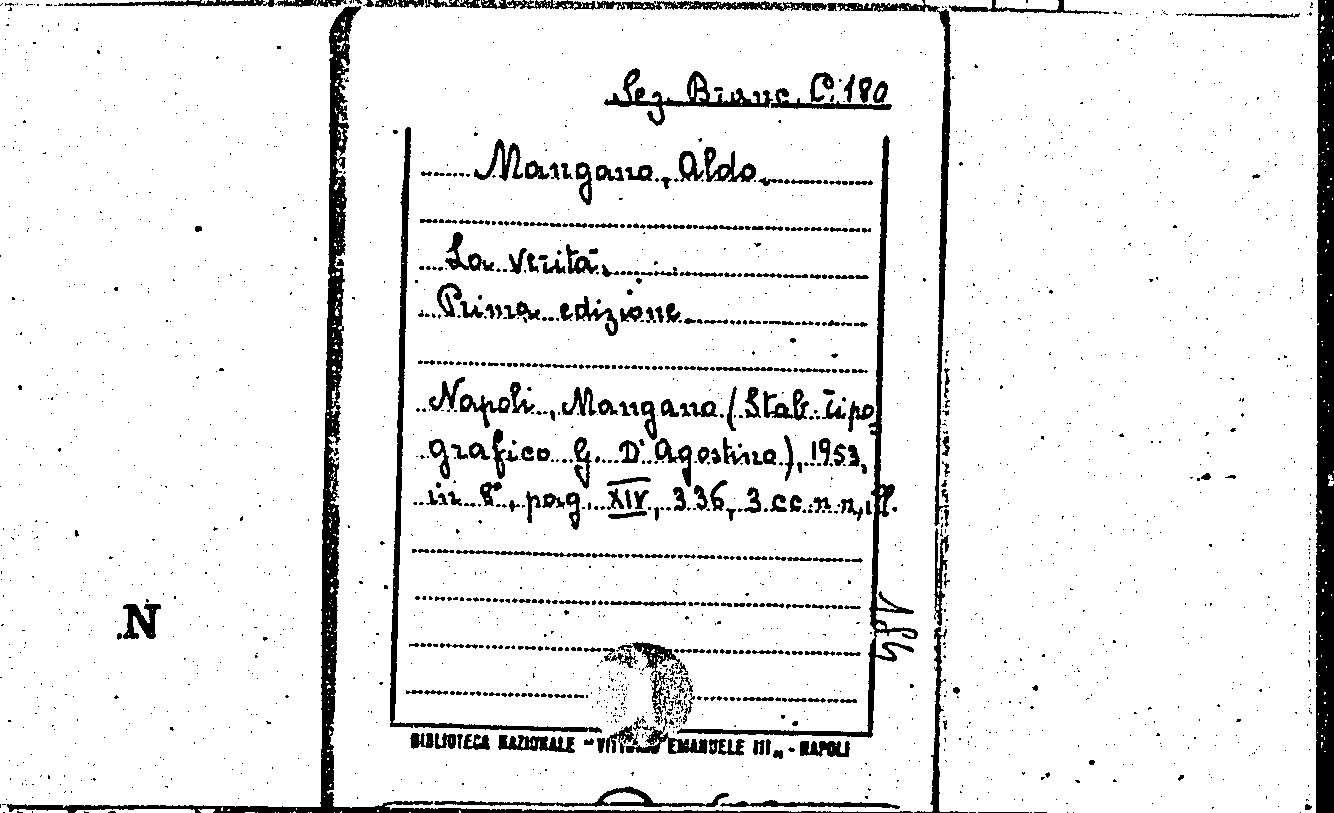 Sez. Branc. C. 180
Mangano, Aldo.
La verità.
Prima edizione.
Napoli, Mangano (Stab. tipo
grafico G. D'Agostino), 1953,
in 8°, pag. XIV, 336, 3 cc. n n, ill.
N
BIBLIOTECA NAZIONALE "VITTORIO EMANUELE III„ - NAPOLI